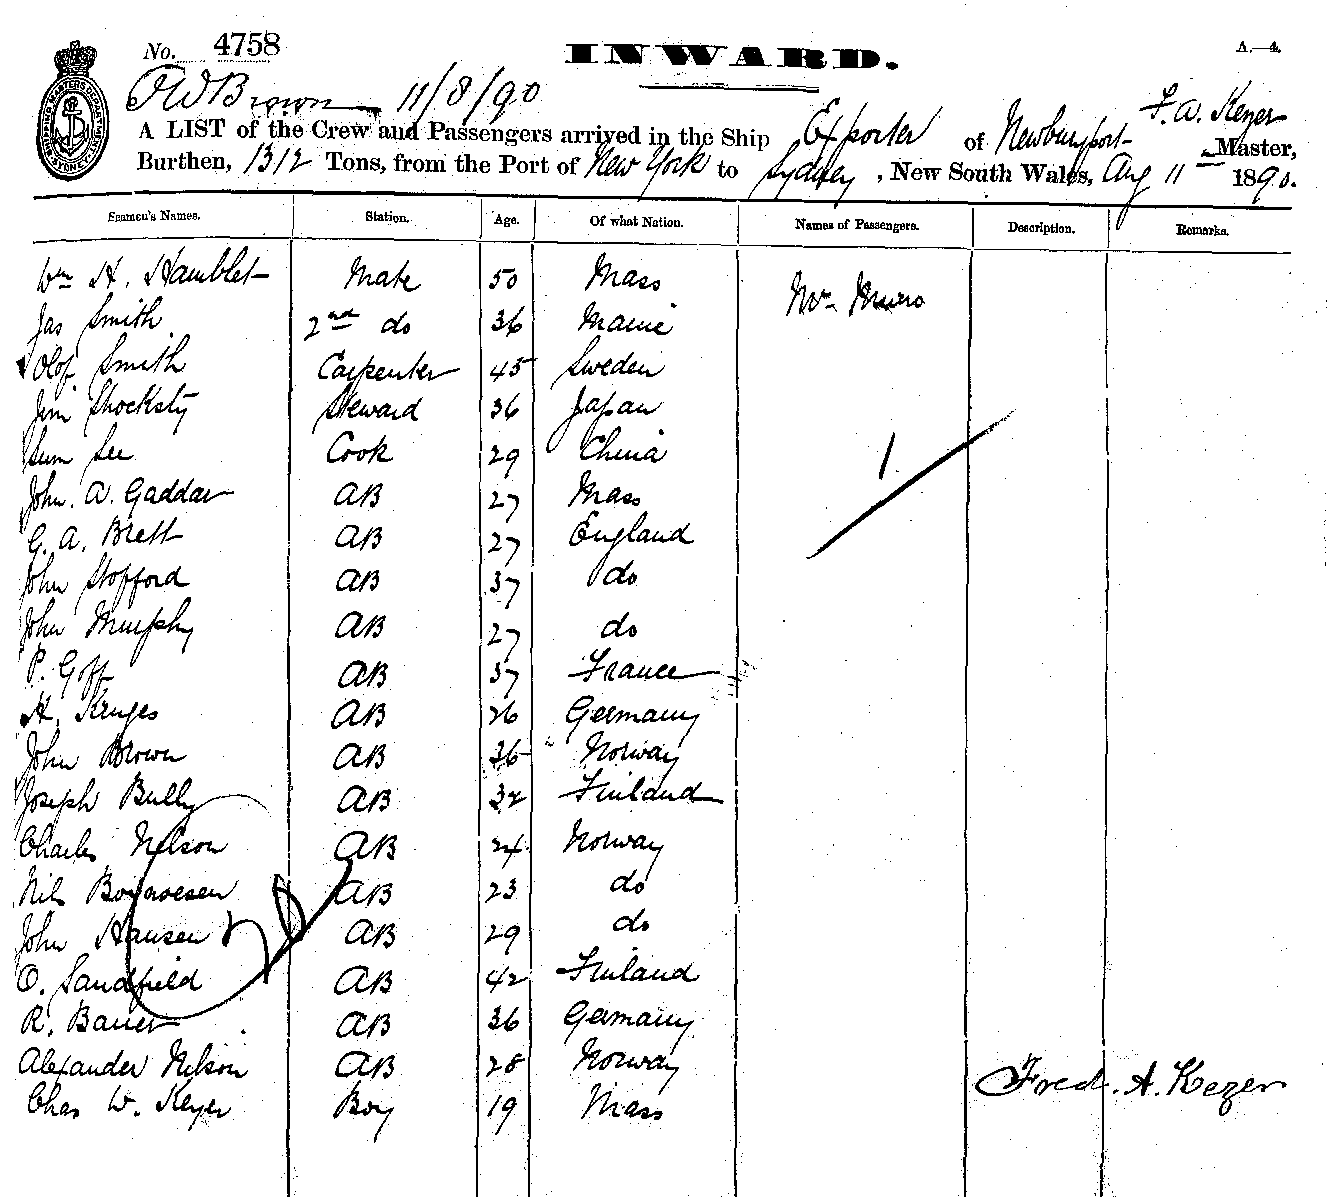 No. 4758
INWARD.
A.—4.
11/8/90
F. A. Kezer
A LIST of the Crew and Passengers arrived in the Ship Exporter of Newburyport Master,
Burthen, 1312 Tons, from the Port of New York to Sydney, New South Wales, Aug 11th 1890.
Seamen's Names. Station. Age. Of what Nation. Names of Passengers. Description. Remarks.
Wm H. Hamblet Mate 50 Mass
Mr Munro
Jas Smith 2nd do 36 Maine
Olof Smith Carpenter 45 Sweden
Jim Steward 36 Japan
Sum See Cook 29 China
John. A. Gaddar AB 27 Mass
G. A. Brett AB 27 England
John Stofford AB 37 do
John Murphy AB 27 do
P. Goff AB 37 France
H. Kruges AB 26 Germany
John Brown AB 36 Norway
Joseph Bully AB 32 Finland
Charles Nelson AB 24 Norway
Nils AB 23 do
John Hansen AB 29 do
O. Sandfield AB 42 Finland
R. Bauer AB 36 Germany
Alexander Nilson AB 28 Norway
Chas W. Kezer Boy 19 Mass
Fred. A. Kezer